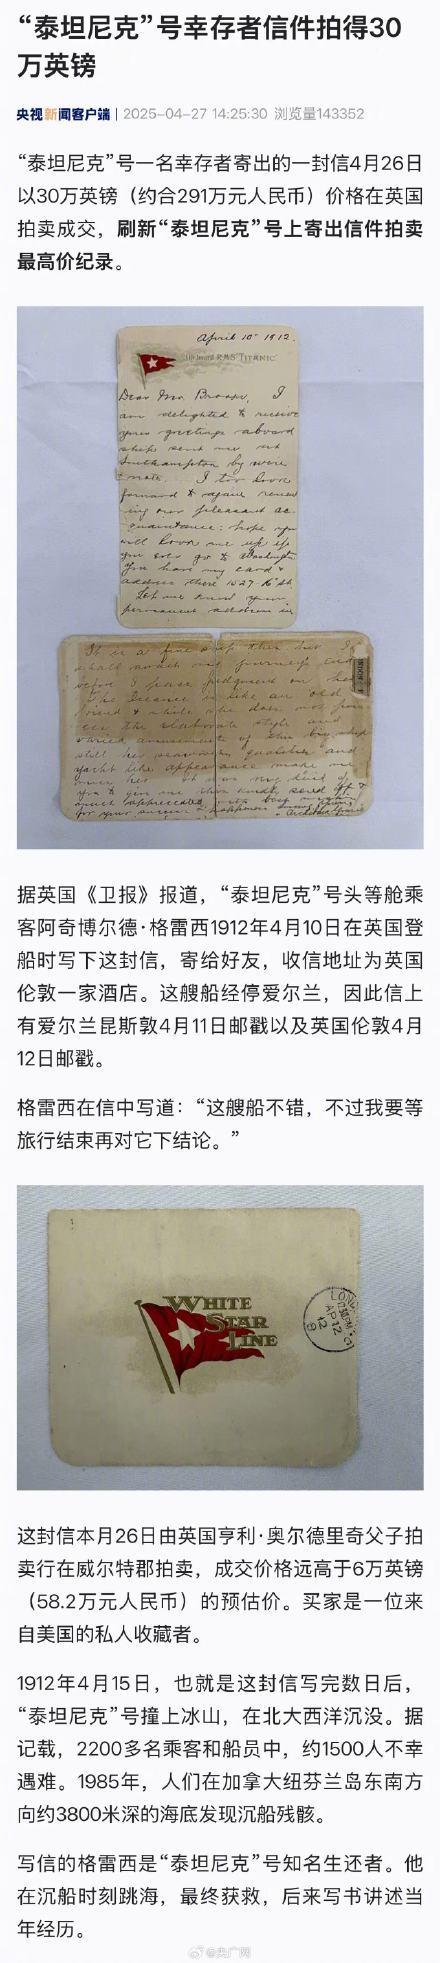 “泰坦尼克”号幸存者信件拍得30
万英镑
央视新闻客户端 | 2025-04-27 14:25:30 浏览量143352
“泰坦尼克”号一名幸存者寄出的一封信4月26日
以30万英镑（约合291万元人民币）价格在英国
拍卖成交，刷新“泰坦尼克”号上寄出信件拍卖
最高价纪录。
April 10th 1912.
On board R.M.S. "TITANIC"
Dear Mrs. I
am delighted to receive
your greetings aboard
ship sent me at
Southampton by wire
note. I too look
forward to again renew
ing our pleasant ac
quaintance: hope you
will look me up if
you ever go to Washington
You have my card &
address there 1527 16 St
Let me know your
permanent address in
It is a fine ship but I
shall await my journeys end
before I pass judgment on her
The Oceanic is like an old
friend & while she does not
the elaborate style and
varied amusements of this big ship
still her seaworthy qualities and
yacht like appearance make me
miss her. It was very kind of
you to give me this kindly send off &
much appreciated with best
for your success & happiness
据英国《卫报》报道，“泰坦尼克”号头等舱乘
客阿奇博尔德·格雷西1912年4月10日在英国登
船时写下这封信，寄给好友，收信地址为英国
伦敦一家酒店。这艘船经停爱尔兰，因此信上
有爱尔兰昆斯敦4月11日邮戳以及英国伦敦4月
12日邮戳。
格雷西在信中写道：“这艘船不错，不过我要等
旅行结束再对它下结论。”
WHITE
STAR
LINE
LON
12.30PM
AP 12
12
这封信本月26日由英国亨利·奥尔德里奇父子拍
卖行在威尔特郡拍卖，成交价格远高于6万英镑
（58.2万元人民币）的预估价。买家是一位来
自美国的私人收藏者。
1912年4月15日，也就是这封信写完数日后，
“泰坦尼克”号撞上冰山，在北大西洋沉没。据
记载，2200多名乘客和船员中，约1500人不幸
遇难。1985年，人们在加拿大纽芬兰岛东南方
向约3800米深的海底发现沉船残骸。
写信的格雷西是“泰坦尼克”号知名生还者。他
在沉船时刻跳海，最终获救，后来写书讲述当
年经历。
@央广网